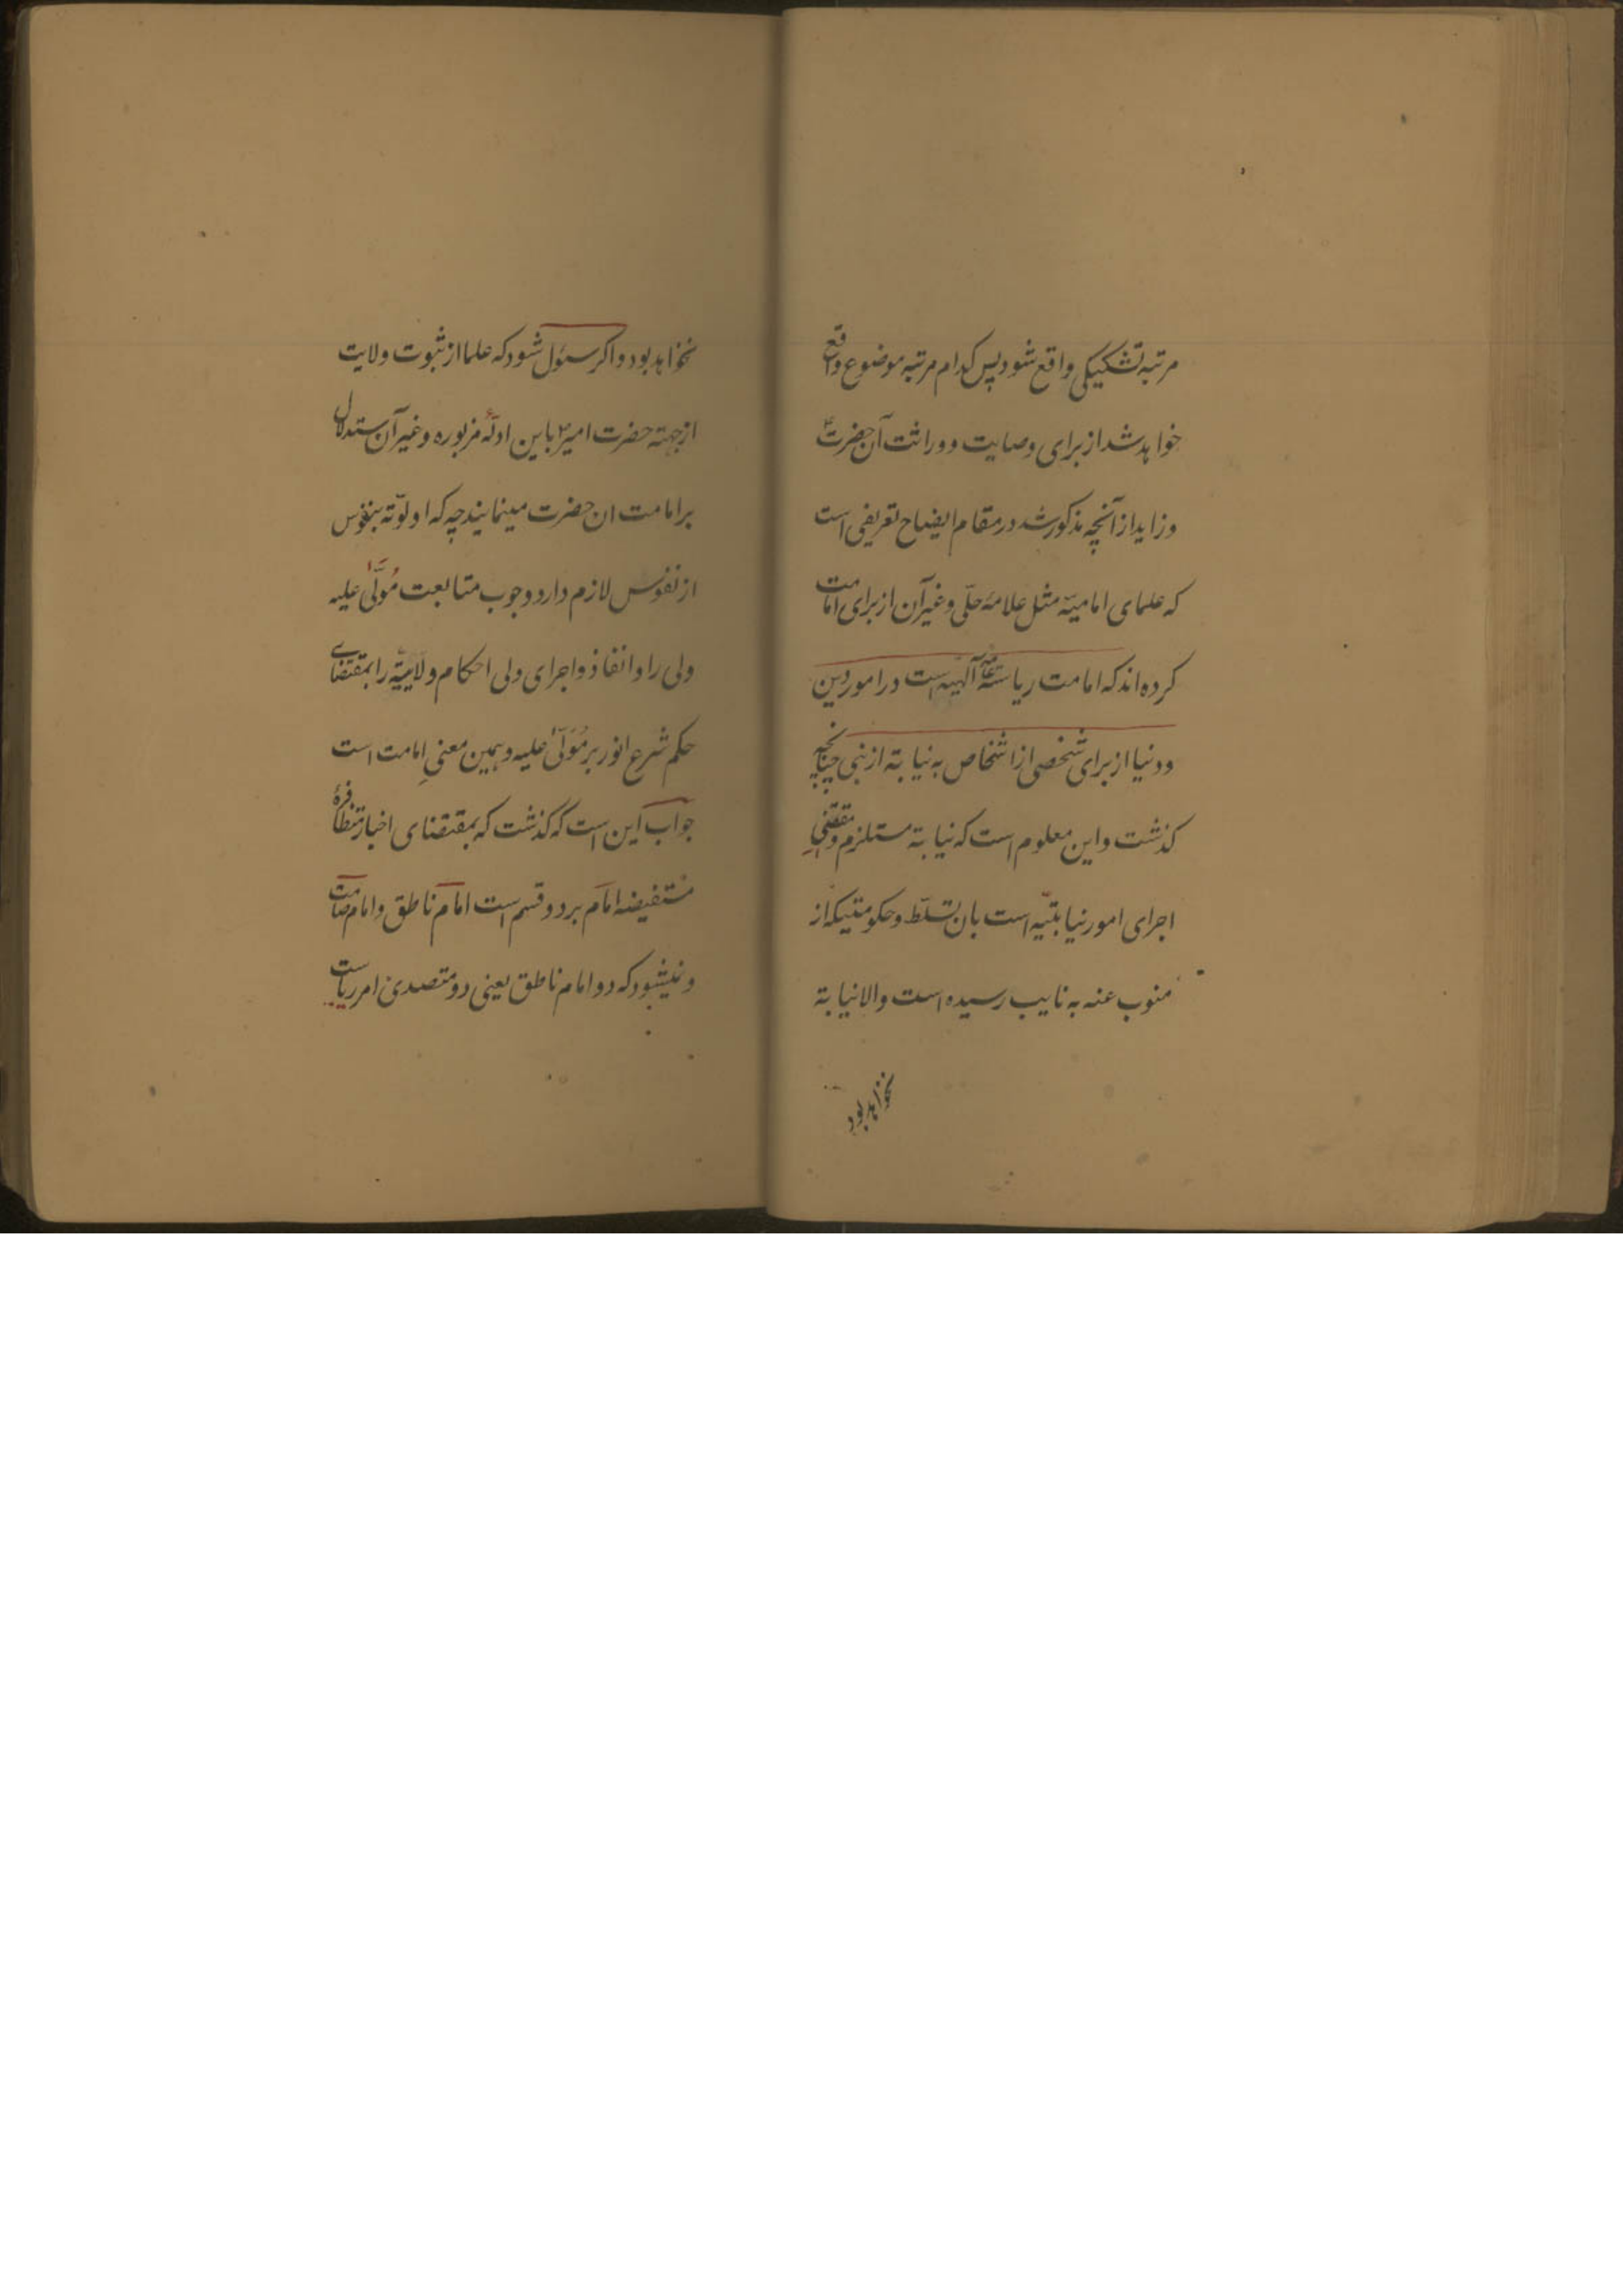 مرتبه تشکیکی واقع شود پس کدام مرتبه موضوع واقع
خواهد شد از برای وصایت و وراثت آن حضرت ۴
و زاید از آنچه مذکور شد در مقام ایضاح تعریفی است
که علمای امامیّه مثل علامهٔ حلّی و غیر آن از برای امامت
کرده‌اند که امامت ریاسته عامّه آلهیّه است در امور دین
و دنیا از برای شخصی از اشخاص به نیابة از نبی چنانچه
کذشت و این معلوم است که نیابة مستلزم و مقتضیِ
اجرای امور نیابتیّه است بان تسلّط و حکومتیکه از
منوب عنه به نایب رسیده است والا نیابة
نخواهد بود
نخواهد بود و اکر سئول شود که علما از ثبوت ولایت
از جهته حضرت امیر۴ باین ادلّهٔ مزبوره و غیر آن ستدلال
بر امامت ان حضرت مینمایند چه که اولوّیة بنفوس
از نفوس لازم دارد وجوب متابعت مُولّیٰ علیه
ولی را و انفاذ و اجرای ولی احکام ولایتیّه را بمقتضای
حکم شرع انور بر مُوَلّیٰ علیه و همین معنیِ امامت است
جواب این است که کذشت که بمقتضای اخبار متظافرهٔ
مُستفیضه امام بر دو قسم است امام ناطق و امام صامت
و نمیشود که دو امام ناطق یعنی دو متصدیٔ امر ریاست